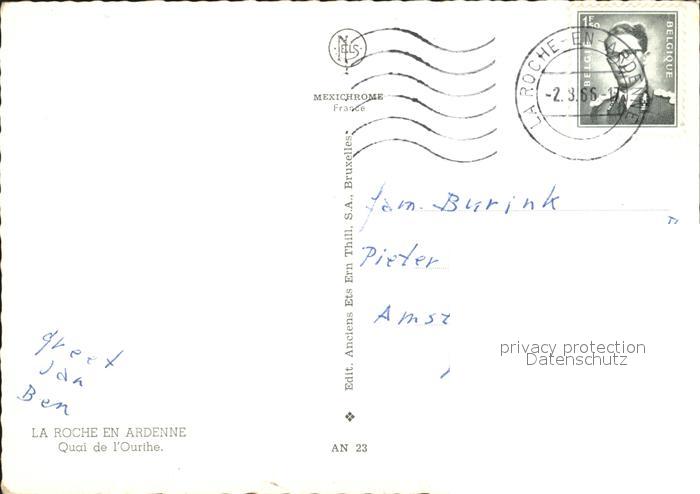 NELS
MEXICHROME
France
1F50
BELGIQUE
LA ROCHE-EN-ARDENNE
-2.8.66-17
Edit. Anciens Ets Ern Thill, S.A., Bruxelles
fam. Burink
Pieter
Ams
privacy protection
Datenschutz
greet
Jan
Ben
LA ROCHE EN ARDENNE
Quai de l'Ourthe.
AN 23